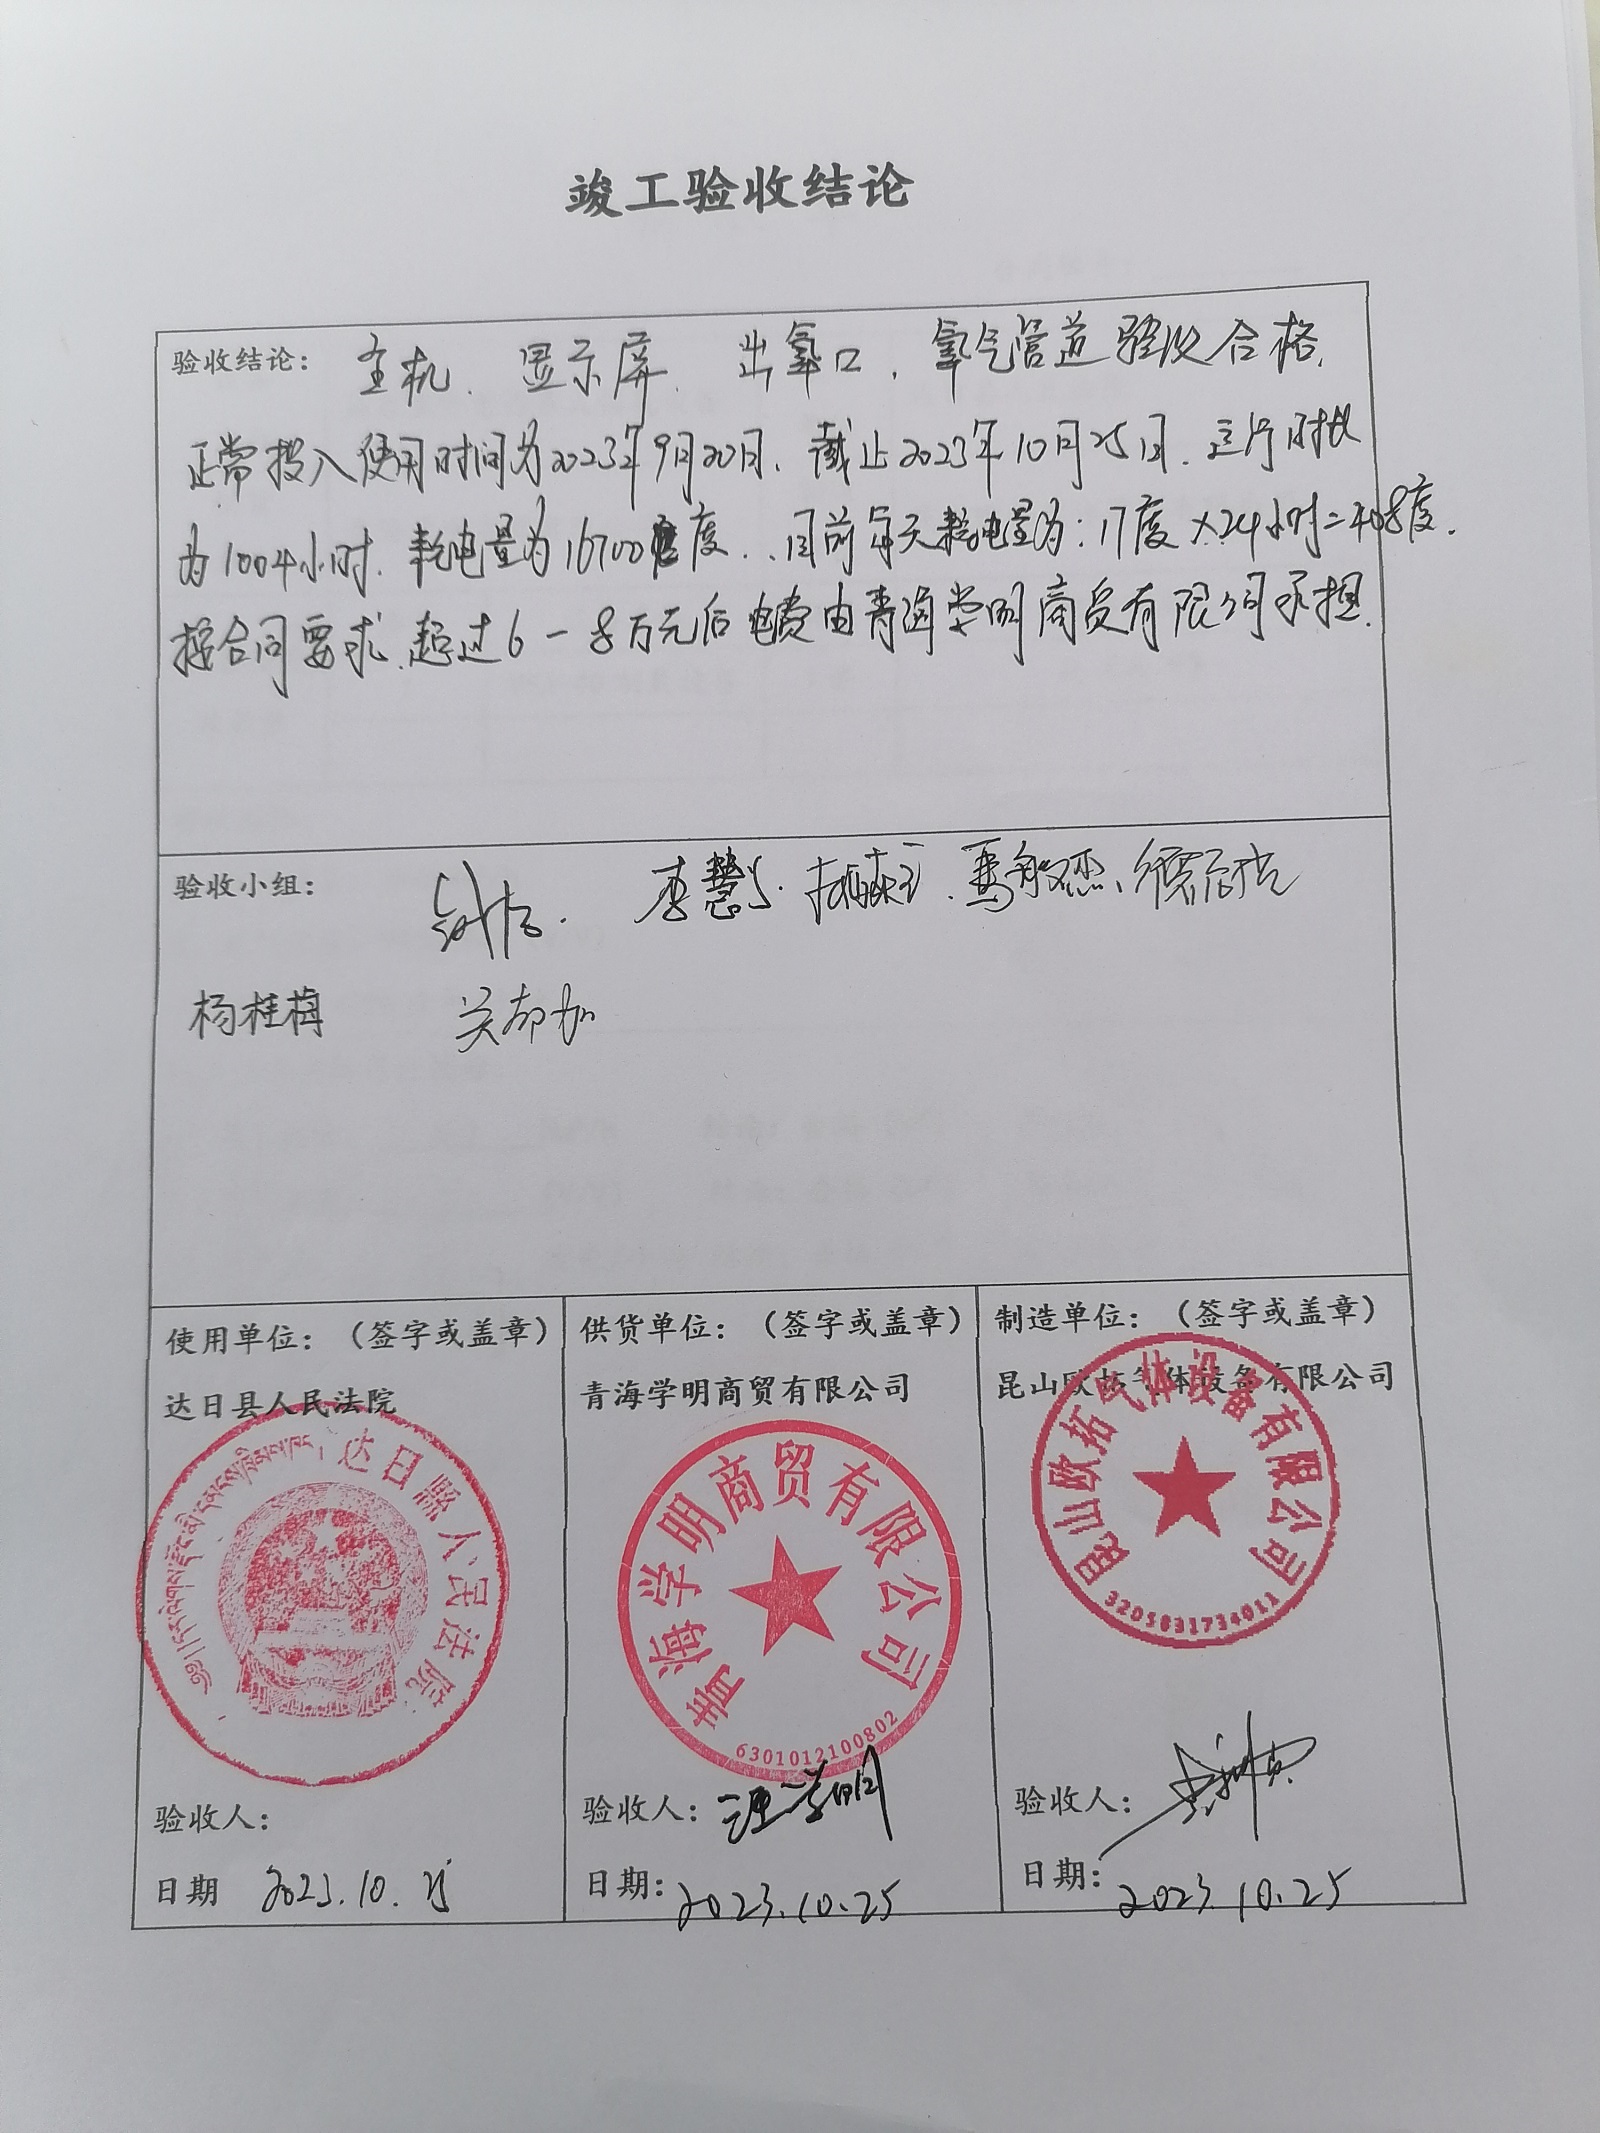 竣工验收结论
验收结论: 主机、显示屏、出氧口、氧气管道验收合格,
正常投入使用时间为2023年9月20日,截止2023年10月25日,运行时长
为1004小时,耗电量为16700度,目前每天耗电量为:17度×24小时=408度.
按合同要求,超过6-8万元后电费由青海学明商贸有限公司承担.
验收小组: 李慧
杨桂梅 关却加
使用单位:(签字或盖章)
达日县人民法院
达日县人民法院
验收人:
日期 2023.10.25
供货单位:(签字或盖章)
青海学明商贸有限公司
青海学明商贸有限公司
6301012100802
验收人: 汪学明
日期: 2023.10.25
制造单位:(签字或盖章)
昆山欧拓气体设备有限公司
昆山欧拓气体设备有限公司
3205831734011
验收人:
日期: 2023.10.25